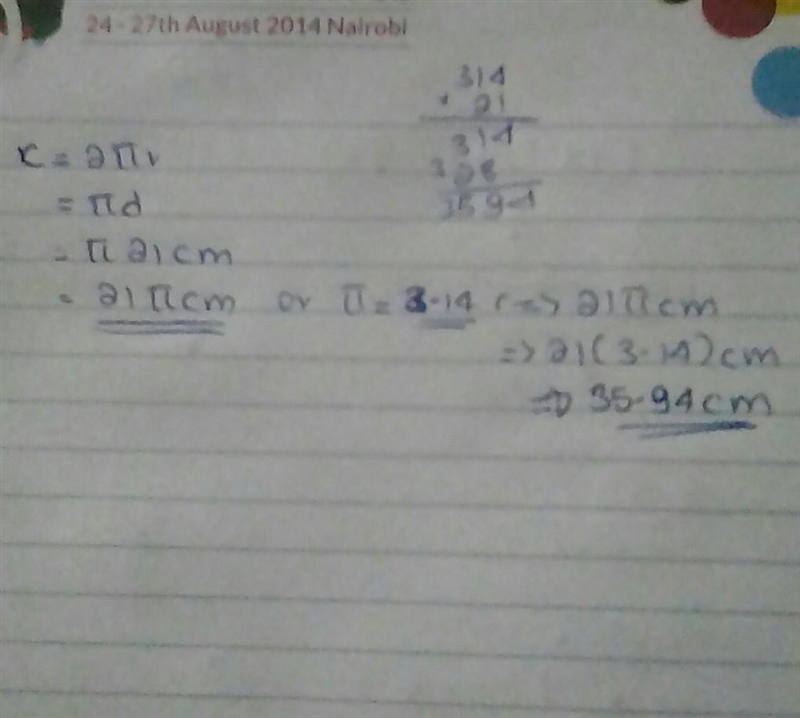 24 - 27th August 2014 Nairobi
314
× 21
314
328
3594
C = 2πr
= πd
= π 21cm
= 21πcm or π = 3.14 ⇒ 21πcm
⇒ 21(3.14)cm
⇒ 35.94cm